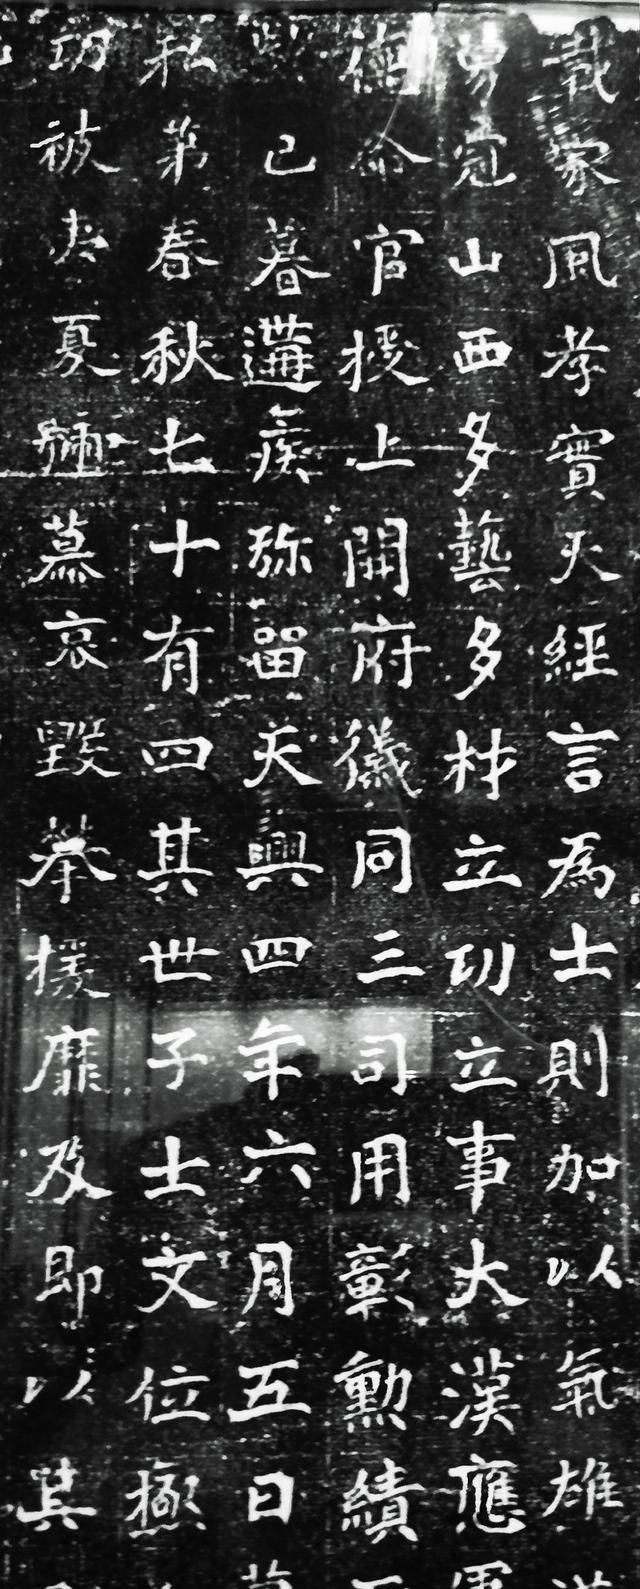 載家風孝實天經言為士則加以氣雄
勇冠山西多藝多材立功立事大漢應
命官授上開府儀同三司用彰勳績
已暮遘疾弥留天興四年六月五日
私第春秋七十有四其世子士文位極
功被夷夏攀慕哀毀攀援靡及即以其